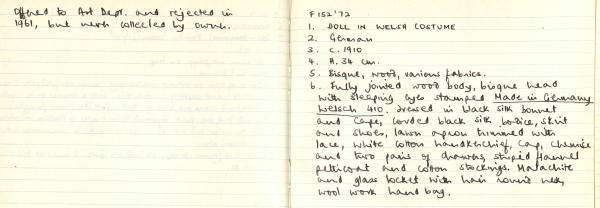 offered to Art Dept. and rejected in
1961, but never collected by owner.
F152'72
1. DOLL IN WELSH COSTUME
2. German
3. c. 1910
4. H. 34 cm.
5. Bisque, wood, various fabrics.
6. Fully jointed wood body, bisque head
with sleeping eyes stamped Made in Germany
Welsch 410. Dressed in black silk bonnet
and cape, corded black silk bodice, skirt
and shoes, lawn apron trimmed with
lace, white cotton handkerchief, cap, chemise
and two pairs of drawers, striped flannel
petticoat and cotton stockings. Malachite
and glass locket with hair round neck,
wool work hand bag.